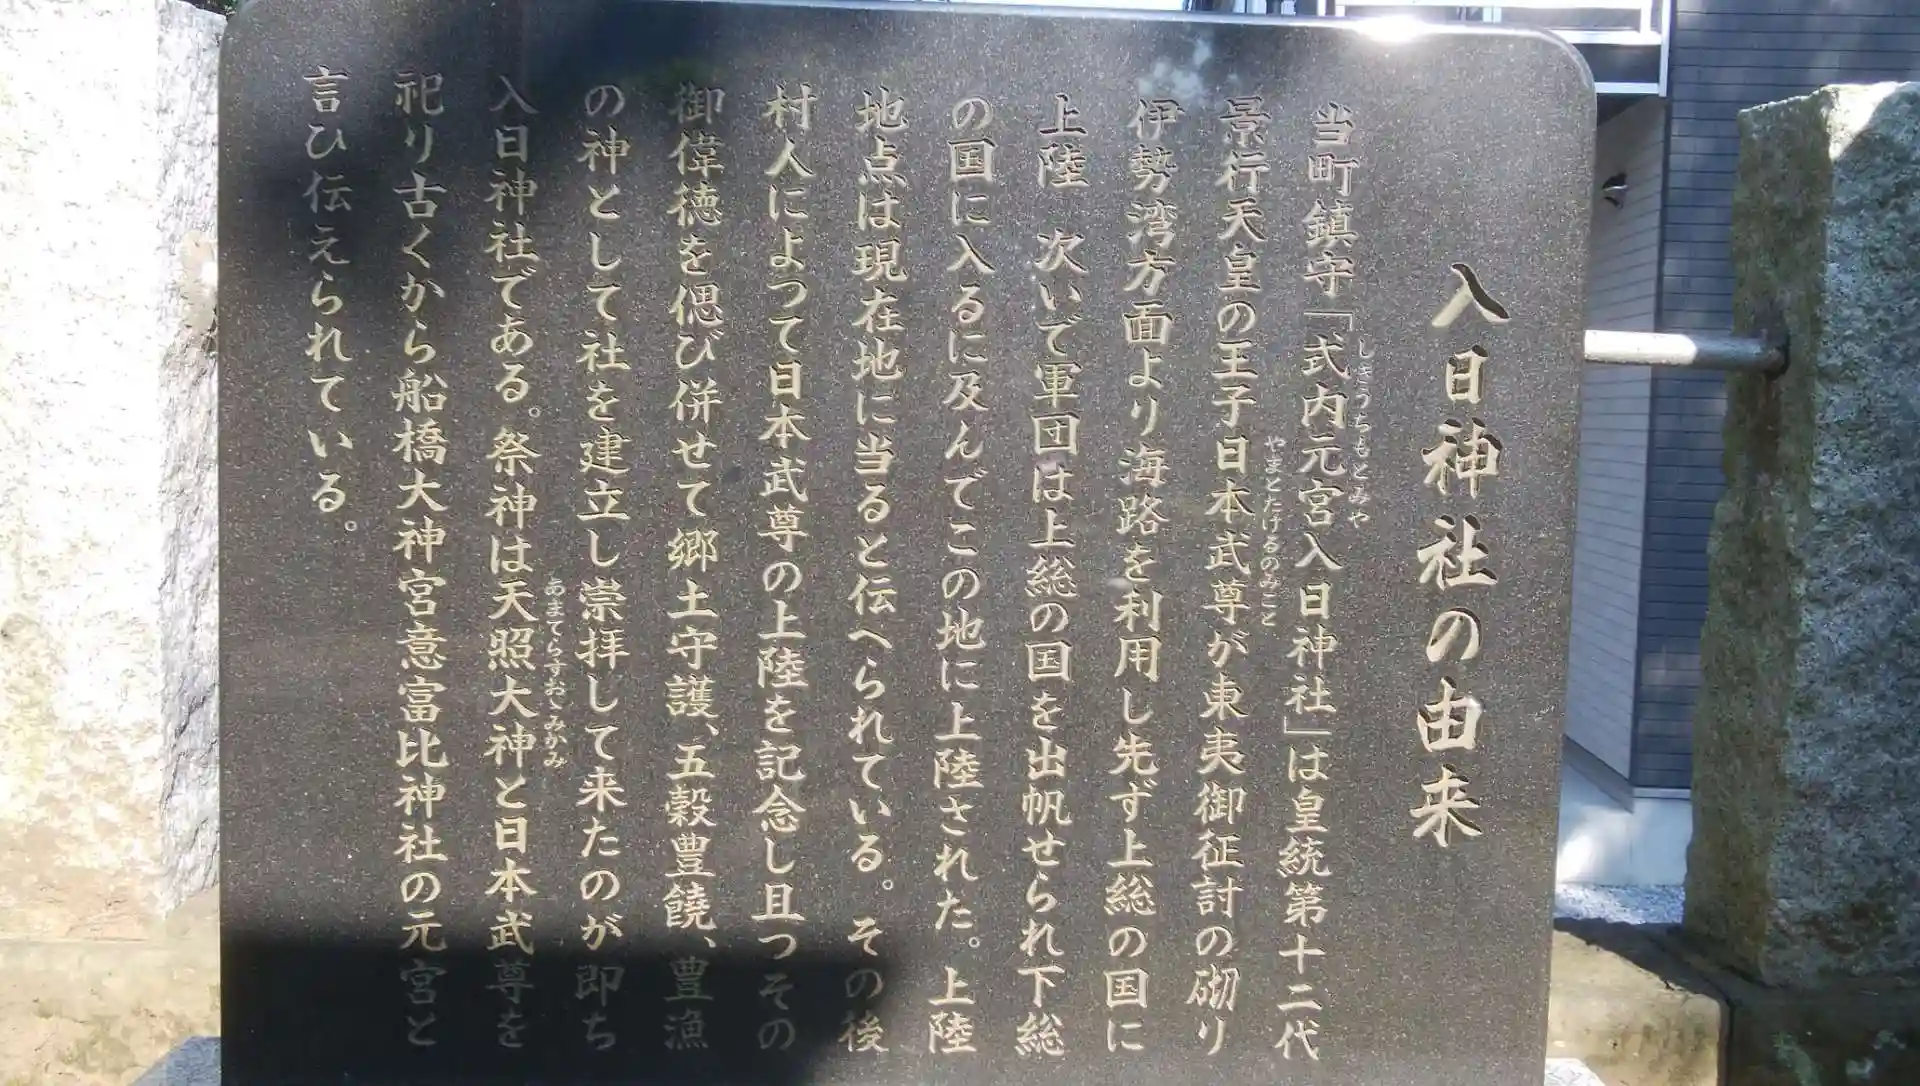 入日神社の由来
当町鎮守「式内元宮入日神社」は皇統第十二代
しきうちもとみや
景行天皇の王子日本武尊が東夷御征討の砌り
やまとたけるのみこと
伊勢湾方面より海路を利用し先ず上総の国に
上陸 次いで軍団は上総の国を出帆せられ下総
の国に入るに及んでこの地に上陸された。上陸
地点は現在地に当ると伝へられている。その後
村人によって日本武尊の上陸を記念し且つその
御偉徳を偲び併せて郷土守護、五穀豊饒、豊漁
の神として社を建立し崇拝して来たのが即ち
入日神社である。祭神は天照大神と日本武尊を
あまてらすおゝみかみ
祀り古くから船橋大神宮意富比神社の元宮と
言ひ伝えられている。